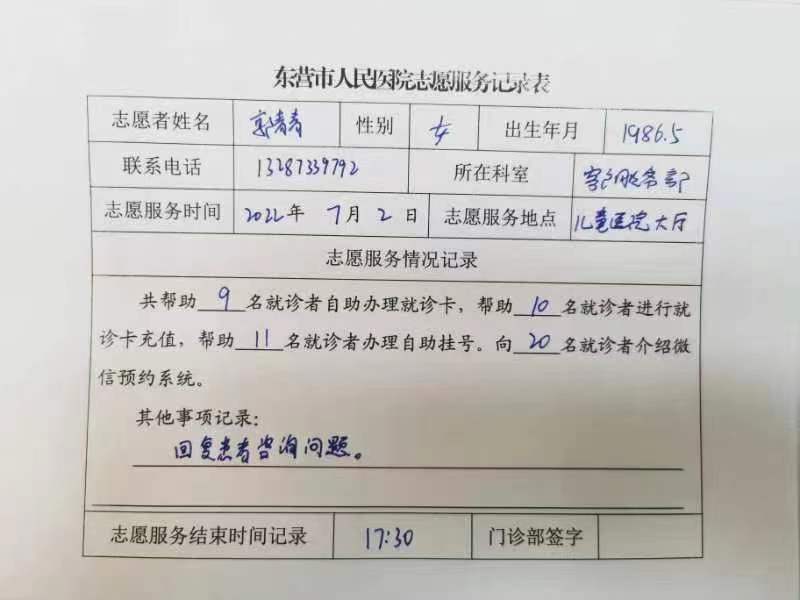 东营市人民医院志愿服务记录表
志愿者姓名 郭青青 性别 女 出生年月 1986.5
联系电话 13287339792 所在科室 客户服务部
志愿服务时间 2022年 7月 2日 志愿服务地点 儿童医院大厅
志愿服务情况记录
共帮助 9 名就诊者自助办理就诊卡，帮助 10 名就诊者进行就
诊卡充值，帮助 11 名就诊者办理自助挂号。向 20 名就诊者介绍微
信预约系统。
其他事项记录：
回复患者咨询问题。
志愿服务结束时间记录 17:30 门诊部签字